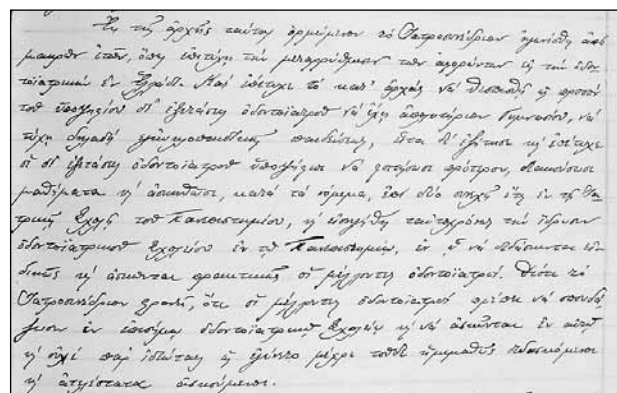 Ἐκ τῆς ἀρχῆς ταύτης ὁρμώμενον τὸ Ἰατροσυνέδριον ἠγωνίσθη ἀπὸ
μακρῶν ἐτῶν, ὅπως ἐπιτύχῃ τὴν μεταρρύθμισιν τῶν ἀφορώντων εἰς τὴν ὀδον-
τοϊατρικὴν ἐν Ἑλλάδι. Καὶ ἐπέτυχε τὸ κατ' ἀρχὰς νὰ θεσπισθῇ ὡς προσὸν
τοῦ ὑποψηφίου δι' ἐξέτασιν ὀδοντοϊατροῦ νὰ ἔχῃ ἀπολυτήριον Γυμνασίου, νὰ
τύχῃ δηλαδὴ ἐγκυκλοπαιδικῆς παιδεύσεως, εἶτα δ' ἐζήτησε καὶ ἐπέτυχε
οἱ δι' ἐξέτασιν ὀδοντοϊατροῦ ὑποψήφιοι νὰ φοιτήσωσι πρότερον, διακούσωσι
μαθήματα καὶ ἀσκηθῶσι, κατὰ τὸ νόμιμα, ἐπὶ δύο συνεχῆ ἔτη ἐν τῇ Ἰα-
τρικῇ Σχολῇ τοῦ Πανεπιστημίου, καὶ εἰσηγήθη ταὐτοχρόνως τὴν ἵδρυσιν
ὀδοντοϊατρικοῦ Σχολείου ἐν τῷ Πανεπιστημίῳ, ἐν ᾧ νὰ διδάσκωνται εἰ-
δικῶς καὶ ἀσκῶνται πρακτικῶς οἱ μέλλοντες ὀδοντοϊατροί. Διότι τὸ
Ἰατροσυνέδριον φρονεῖ, ὅτι οἱ μέλλοντες ὀδοντοϊατροὶ πρέπει νὰ σπουδά-
ζωσιν ἐν ἐπισήμῳ ὀδοντοϊατρικῷ Σχολείῳ καὶ νὰ ἀσκῶνται ἐν αὐτῷ
καὶ οὐχὶ παρ' ἰδιώταις ὡς ἐγίνετο μέχρι τοῦδε ἡμιμαθῶς διδασκόμενοι
καὶ ἀτελέστατα ἀσκούμενοι.